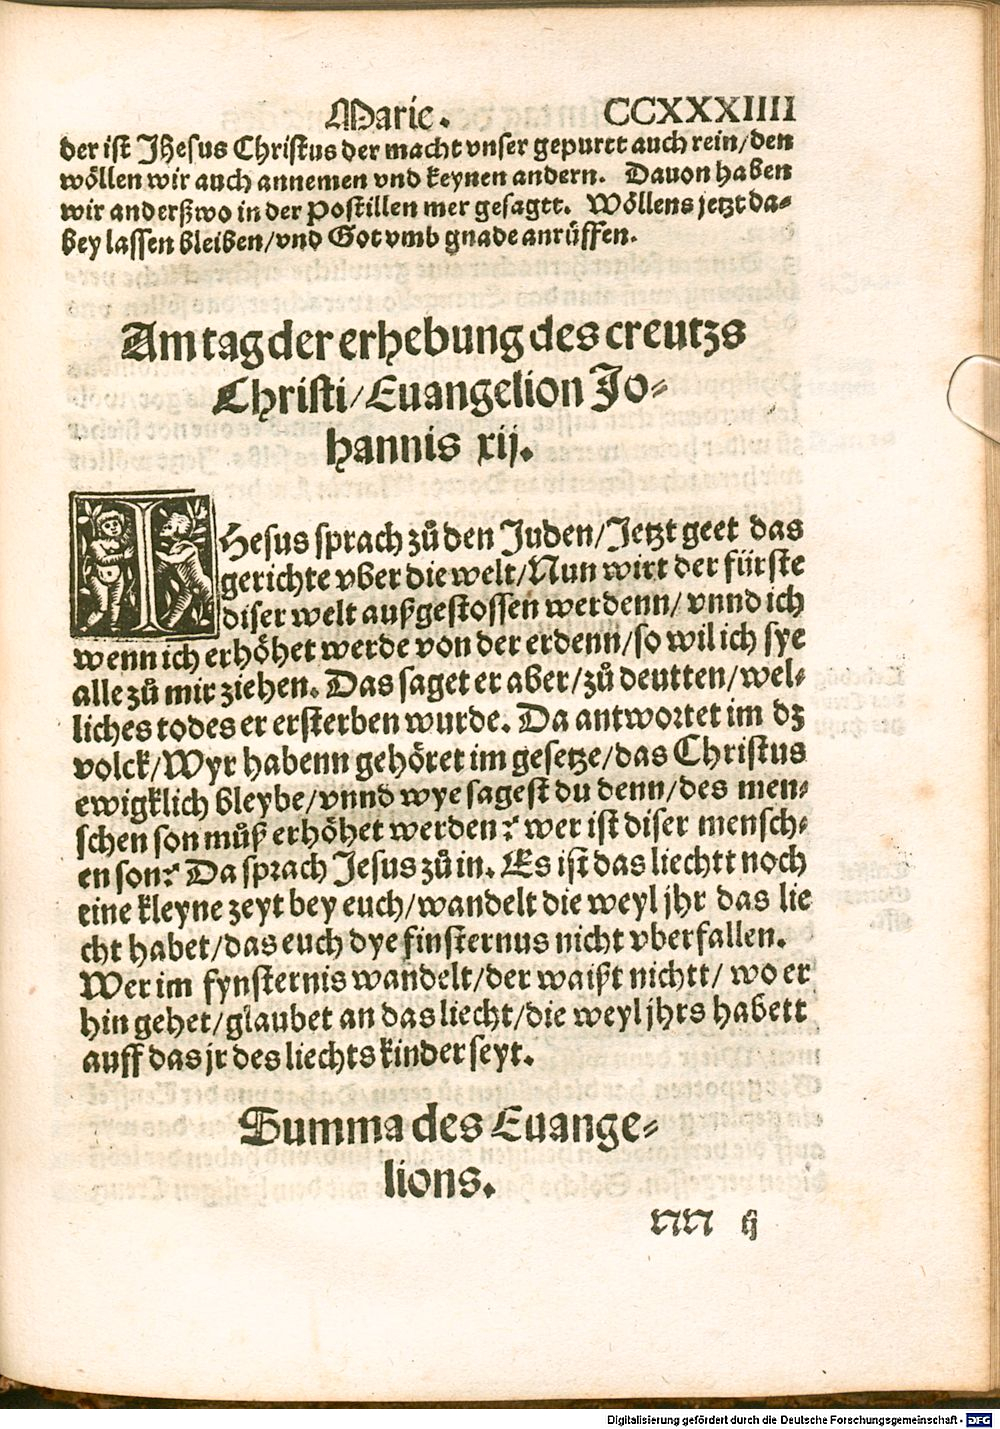 Marie. CCXXXIIII
der ist Jhesus Christus der macht vnser gepurtt auch rein/den
wöllen wir auch annemen vnd keynen andern. Dauon haben
wir anderßwo in der Postillen mer gesagtt. Wöllens jetzt da-
bey lassen bleiben/vnd Got vmb gnade anrüffen.
Am tag der erhebung des creutzs
Christi/Euangelion Jo-
hannis xij.
IHesus sprach zů den Juden/Jetzt geet das
gerichte vber die welt/Nun wirt der fürste
diser welt außgestossen werdenn/vnnd ich
wenn ich erhöhet werde von der erdenn/so wil ich sye
alle zů mir ziehen. Das saget er aber/zů deutten/wel-
liches todes er ersterben wurde. Da antwortet im dz
volck/Wyr habenn gehöret im gesetze/das Christus
ewigklich bleybe/vnnd wye sagest du denn/des men-
schen son můß erhöhet werden? wer ist diser mensch-
en son? Da sprach Jesus zů in. Es ist das liechtt noch
eine kleyne zeyt bey euch/wandelt die weyl jhr das lie
cht habet/das euch dye finsternus nicht vberfallen.
Wer im fynsternis wandelt/der waißt nichtt/ wo er
hin gehet/glaubet an das liecht/die weyl jhrs habett
auff das jr des liechts kinder seyt.
Summa des Euange-
lions.
nn ij
Digitalisierung gefördert durch die Deutsche Forschungsgemeinschaft - DFG